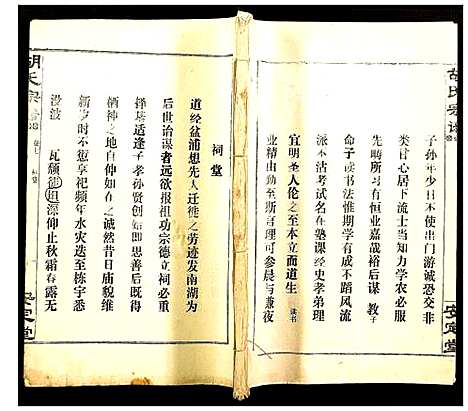 胡氏宗谱
子孙年少日不使出门游诚恐交非
类甘心居下流士当知力学农必服
先畴所习有恒业嘉哉裕后谋 教子
命子读书法惟期学有成不蹈风流
派不沾考试名在塾课经史孝弟理
宜明圣人伦之至本立而道生 读书
业精由勤至斯言理可参晨与兼夜
安定堂
祠堂
道经盆浦想先人迁徙之劳迹发南湖为
后世治谋者远欲报祖功宗德立祠必重
择基适逢子孝孙贤创始即为完善庙貌
栖神之地自伸如在之诚然昔日庙貌维
新岁时不愆享祀频年水灾迭至栋宇悉
没波 瓦颓徒祖深仰止秋霜春露无
胡氏宗谱
安定堂